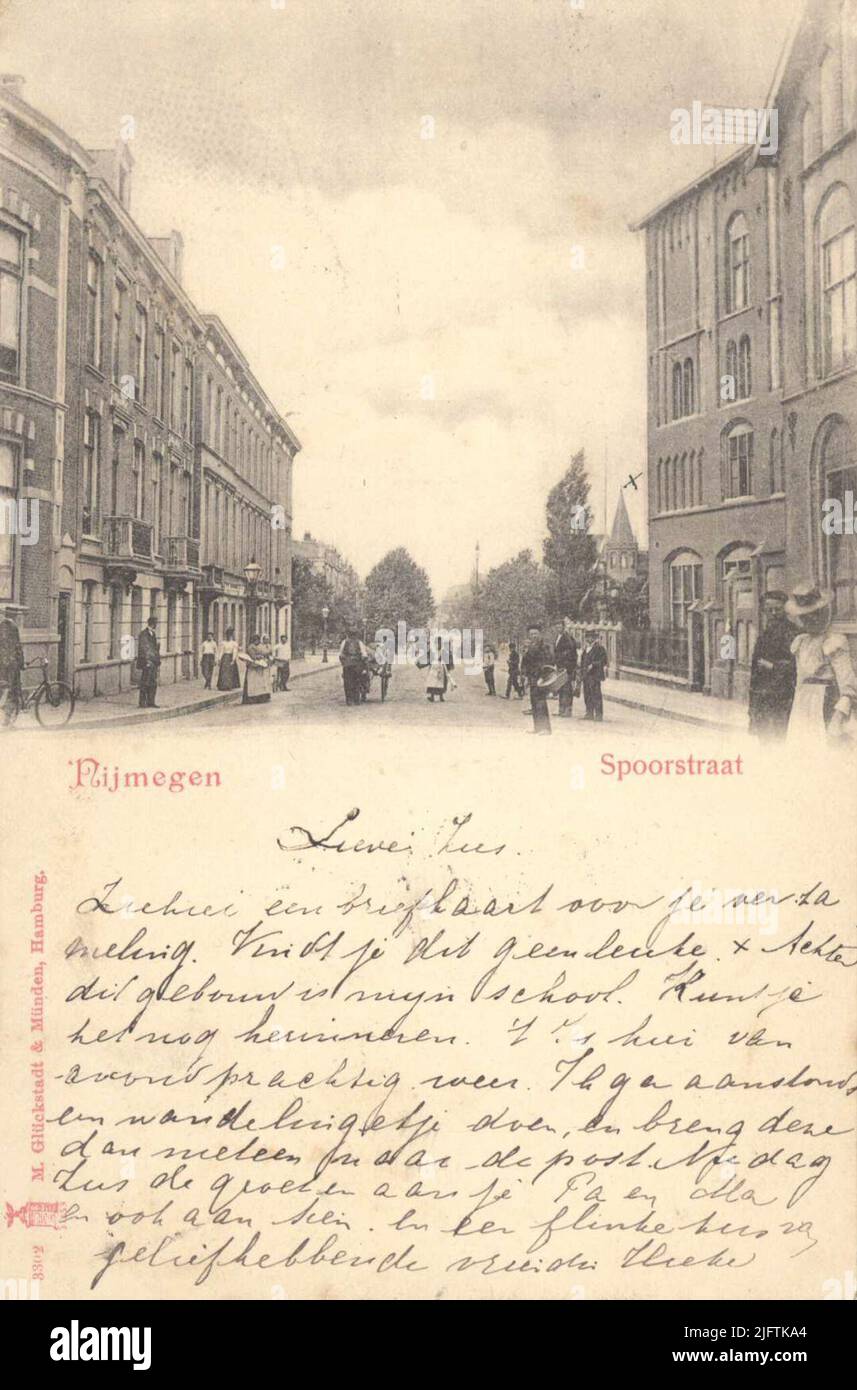 Nijmegen
Spoorstraat
Lieve Zus.
Ziehier een briefkaart voor je verza
meling. Vindt je dit geen leuke. x Achter
dit gebouw is mijn school. Kunt je
het nog herinneren. 't Is hier van
avond prachtig weer. Ik ga aanstonds
een wandelingetje doen, en breng deze
dan meteen naar de post. Nu dag
Zus de groeten aan je Pa en Ma
En ook aan Sien. En een flinke kus van
geliefhebbende vriendin
M. Glückstadt & Münden, Hamburg.
3302
alamy
Image ID: 2JFTKA4
www.alamy.com